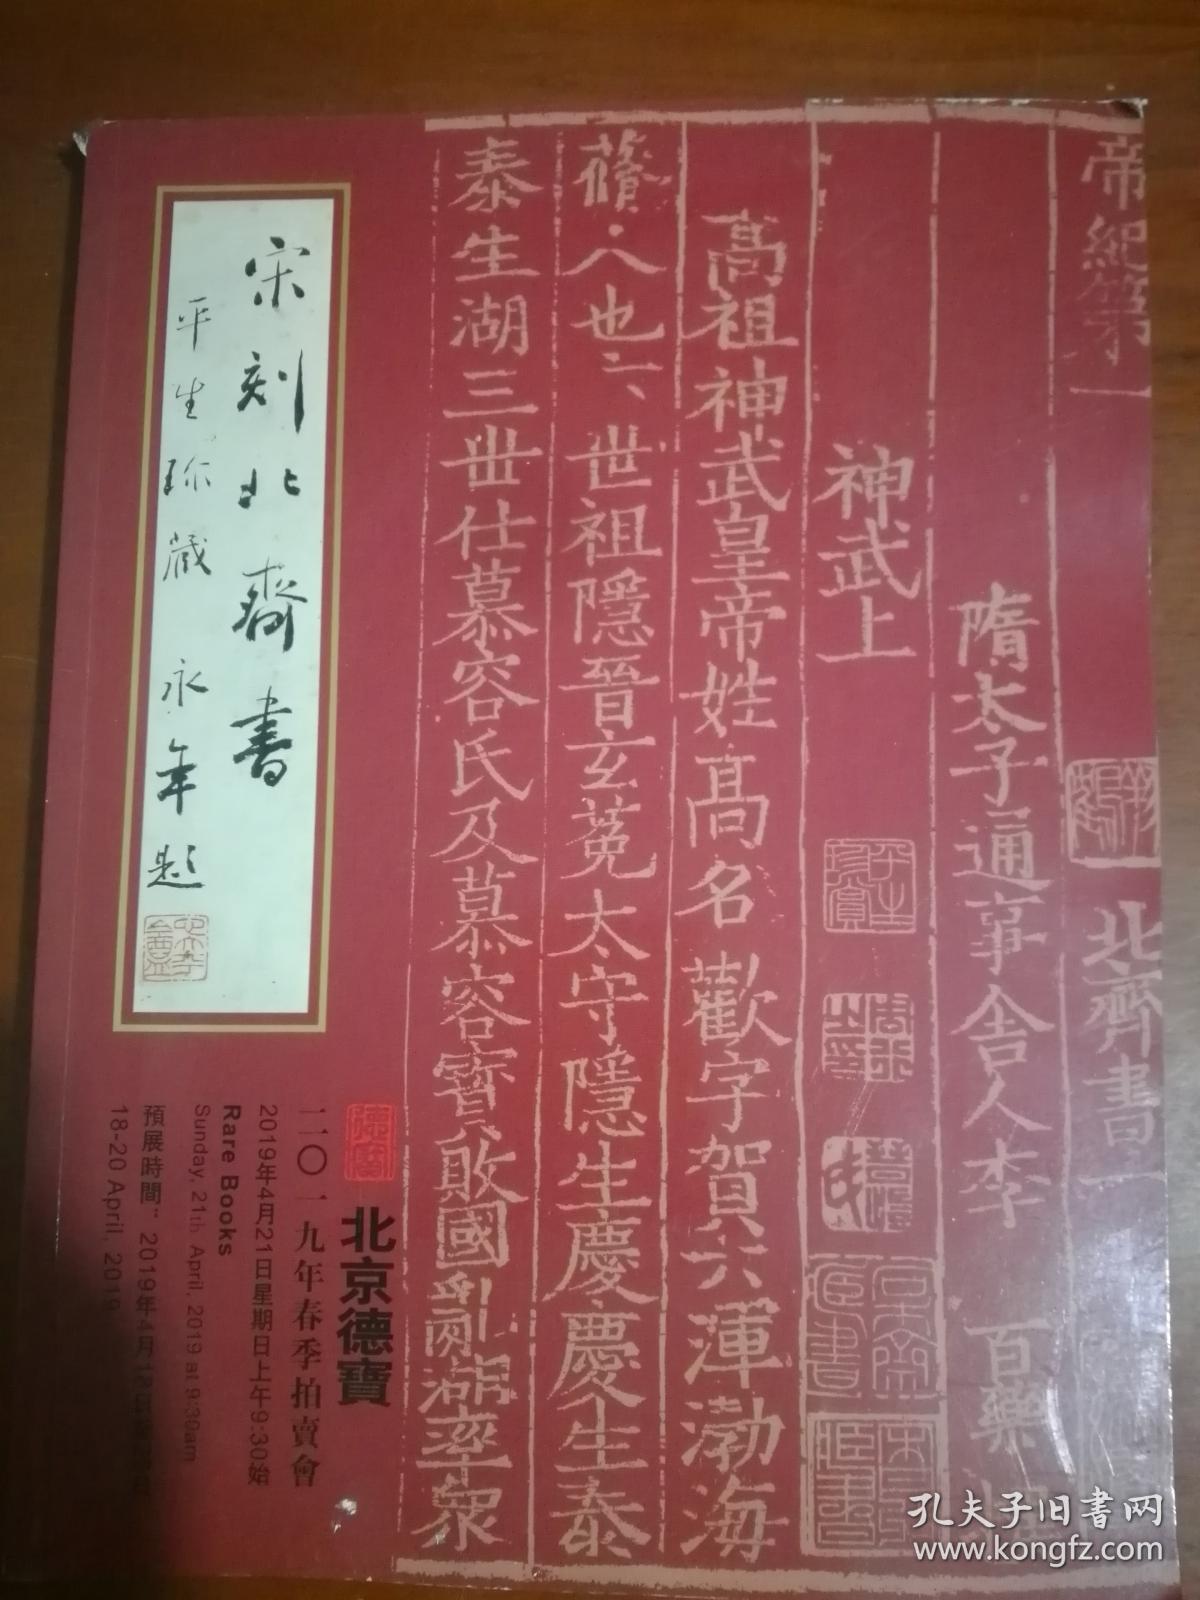 帝紀第一
北齊書一
隋太子通事舍人李
百藥
神武上
高祖神武皇帝姓高名歡字賀六渾渤海
蓚人也六世祖隱晉玄菟太守隱生慶慶生泰
泰生湖三世仕慕容氏及慕容寶敗國亂湖率衆
宋刻北齊書
平生珎藏
永年題
北京德寶
二〇一九年春季拍賣會
2019年4月21日星期日上午9:30始
Rare Books
Sunday, 21th April, 2019 at 9:30am
預展時間：2019年4月18日
18-20 April, 2019
孔夫子旧书网
www.kongfz.com